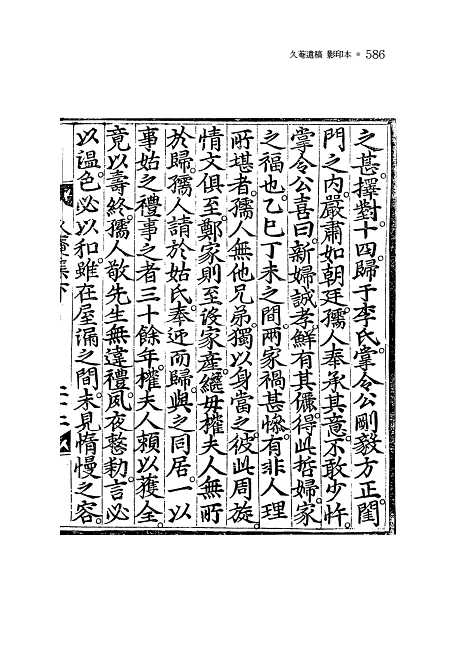 久菴遺稿 影印本 ● 586
之甚。擇對。十四。歸于李氏。掌令公剛毅方正。閨
門之內。嚴肅如朝廷。孺人奉承其意。不敢少忤。
掌令公喜曰。新婦誠孝。鮮有其儷。得此哲婦。家
之福也。乙巳丁未之間。兩家禍甚慘。有非人理
所堪者。孺人無他兄弟。獨以身當之。彼此周旋。
情文俱至。鄭家則至破家產。繼毋權夫人無所
於歸。孺人請於姑氏。奉迎而歸。與之同居。一以
事姑之禮事之者三十餘年。權夫人賴以獲全。
竟以壽終。孺人敬先生無違禮。夙夜慇勑。言必
以溫。色必以和。雖在屋漏之間。未見惰慢之容。
久菴集下